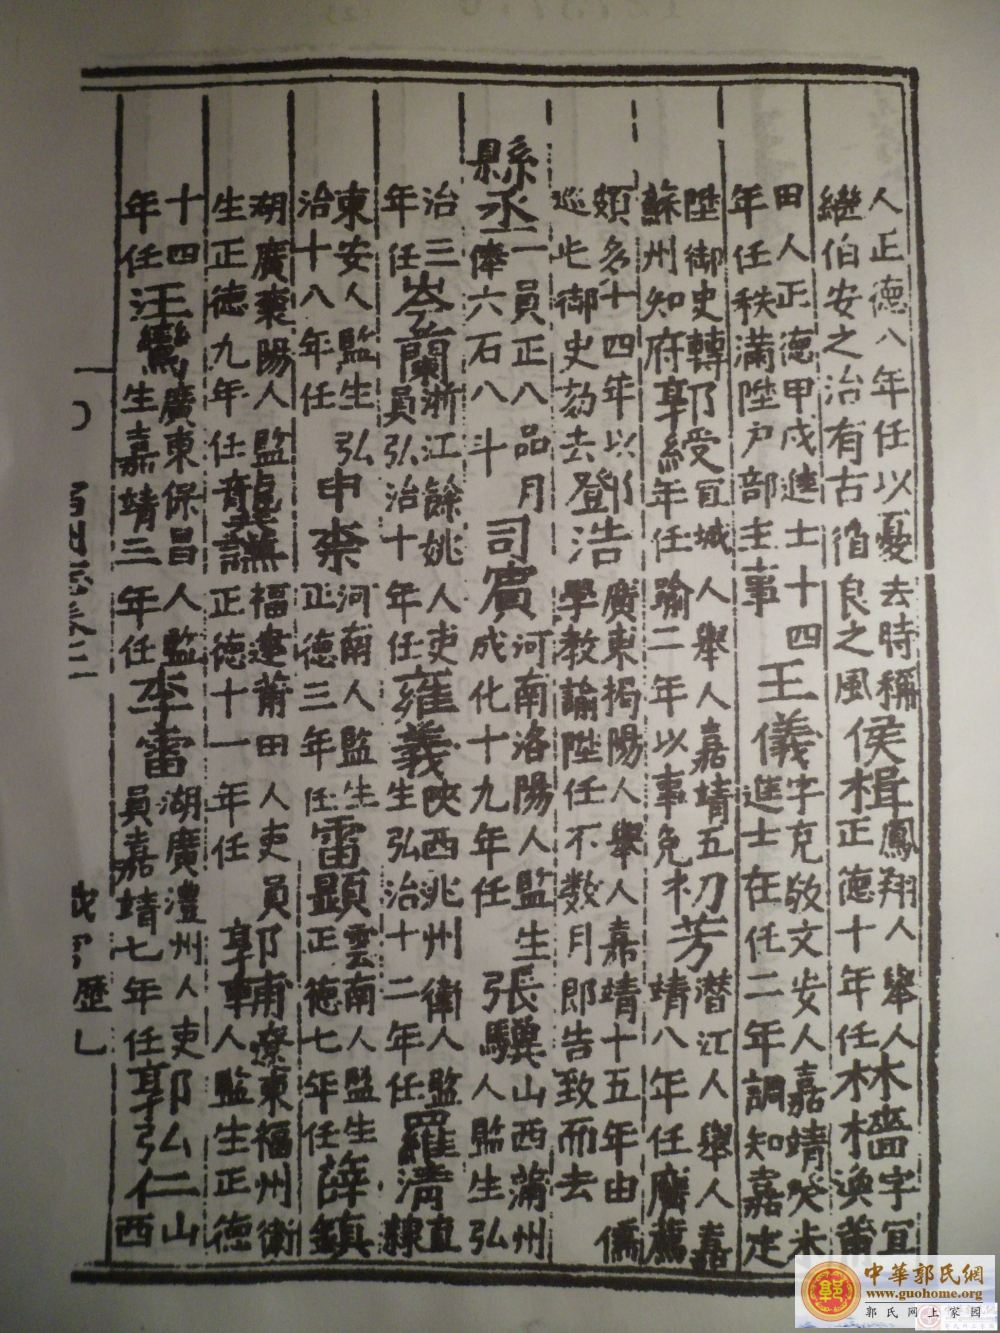 人正德八年任以憂去時稱繼伯安之治有古循良之風侯楫鳳翔人舉人正德十年任林檣字宜渙莆
田人正德甲戌進士十四年任秩滿陞戶部主事王儀字克敬文安人嘉靖癸未進士在任二年調知嘉定
陞御史轉蘇州知府宜城人舉人嘉靖五年任踰二年以事免初芳潛江人舉人嘉靖八年任
頗多十四年以巡此御史劾去鄧浩廣東揭陽人舉人嘉靖十五年由儒學教諭陞任不数月即告致而去
縣丞一員正八品月俸六石八斗司賓河南洛陽人監生成化十九年任張驥山西蒲州人監生弘
治三年任岑蘭浙江餘姚人吏員弘治十年任雍義陝西洮州衛人監生弘治十二年任羅清直隸
東安人監生弘治十八年任申棠河南人監生正德三年任雷顯雲南人監生正德七年任薛鎮
湖廣棗陽人監生正德九年任福建莆田人吏員正德十一年任郭輔遼東福州衛人監生正德
十四年任汪鸞廣東保昌人監生嘉靖三年任李雷湖廣澧州人吏員嘉靖七年任郭弘仁山西
中華郭氏網
www.guohome.org
郭氏网上家园